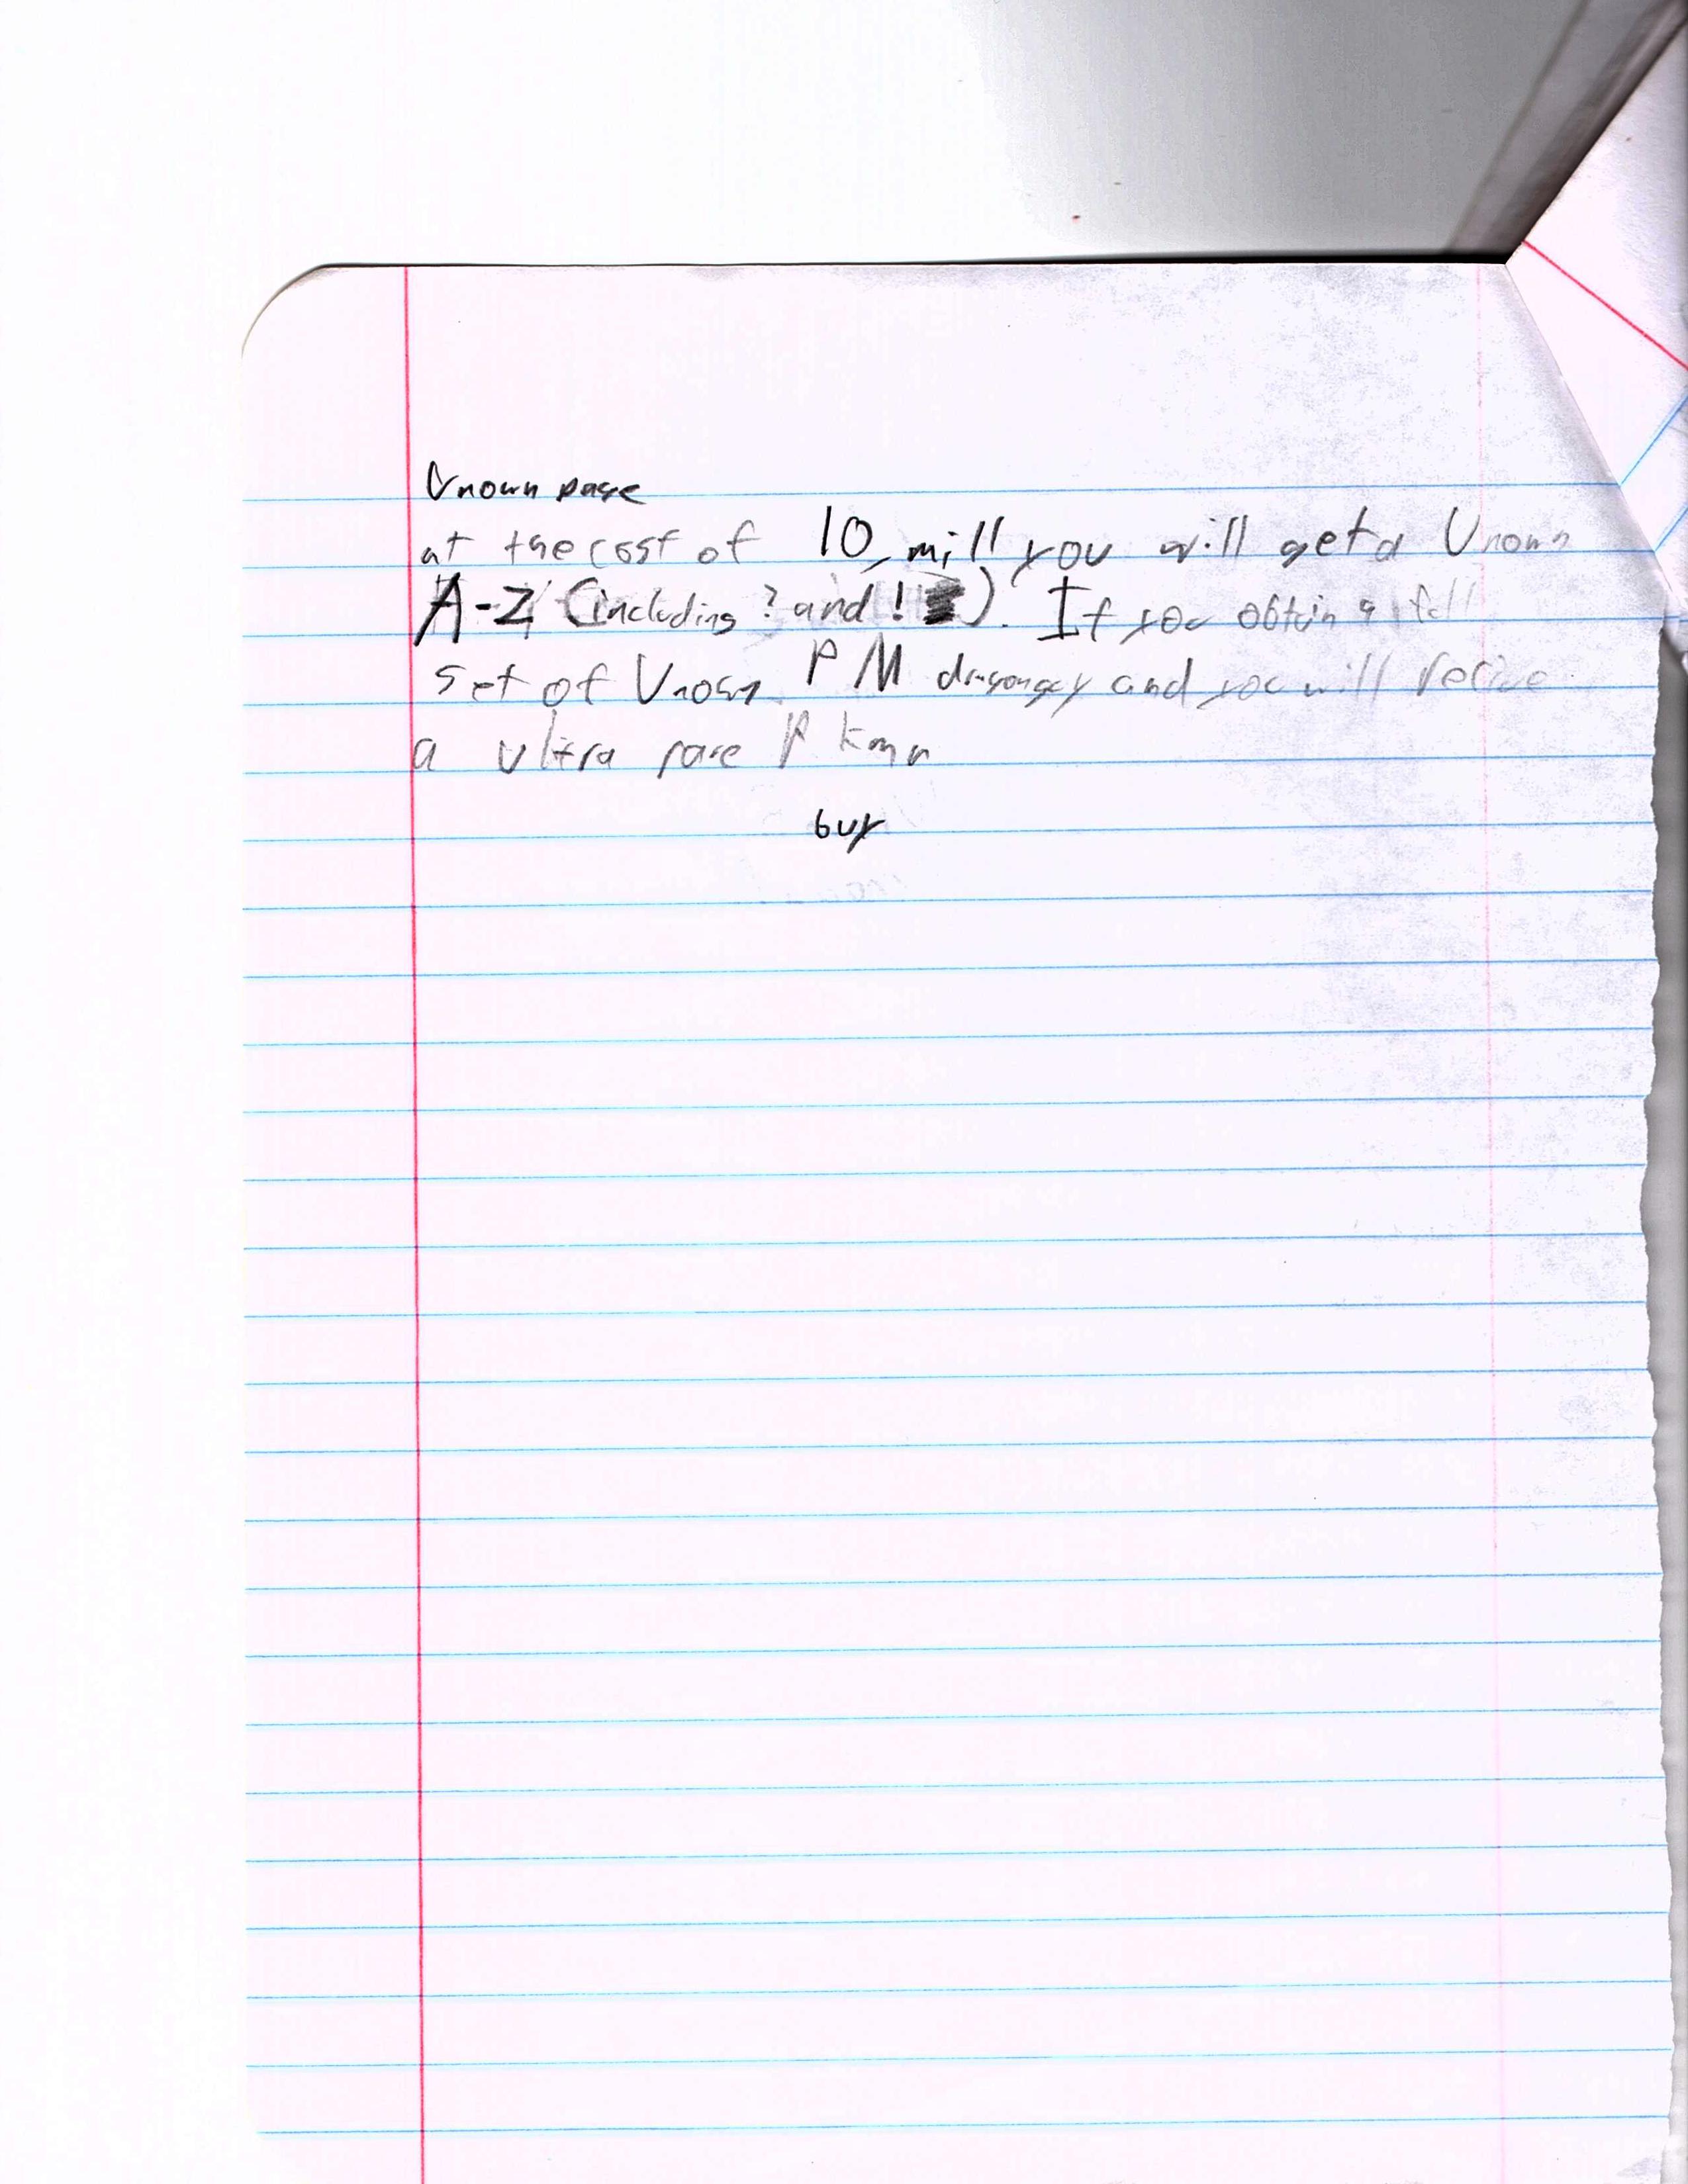 Unown page
at the cost of 10 mill you will get a Unown
A-Z (including ? and !). If you obtin a full
set of Unown PM dragongey and you will recive
a ultra rare Pkmn
buy